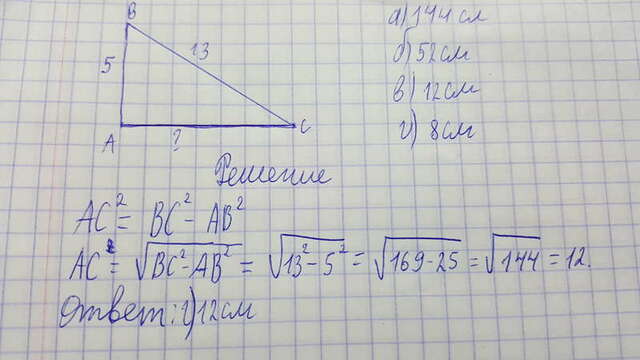 B
5
13
A
?
C
а) 144 см
б) 52 см
в) 12 см
г) 8 см
Решение
AC² = BC² - AB²
AC = √BC² - AB² = √13² - 5² = √169 - 25 = √144 = 12.
Ответ: г) 12 см